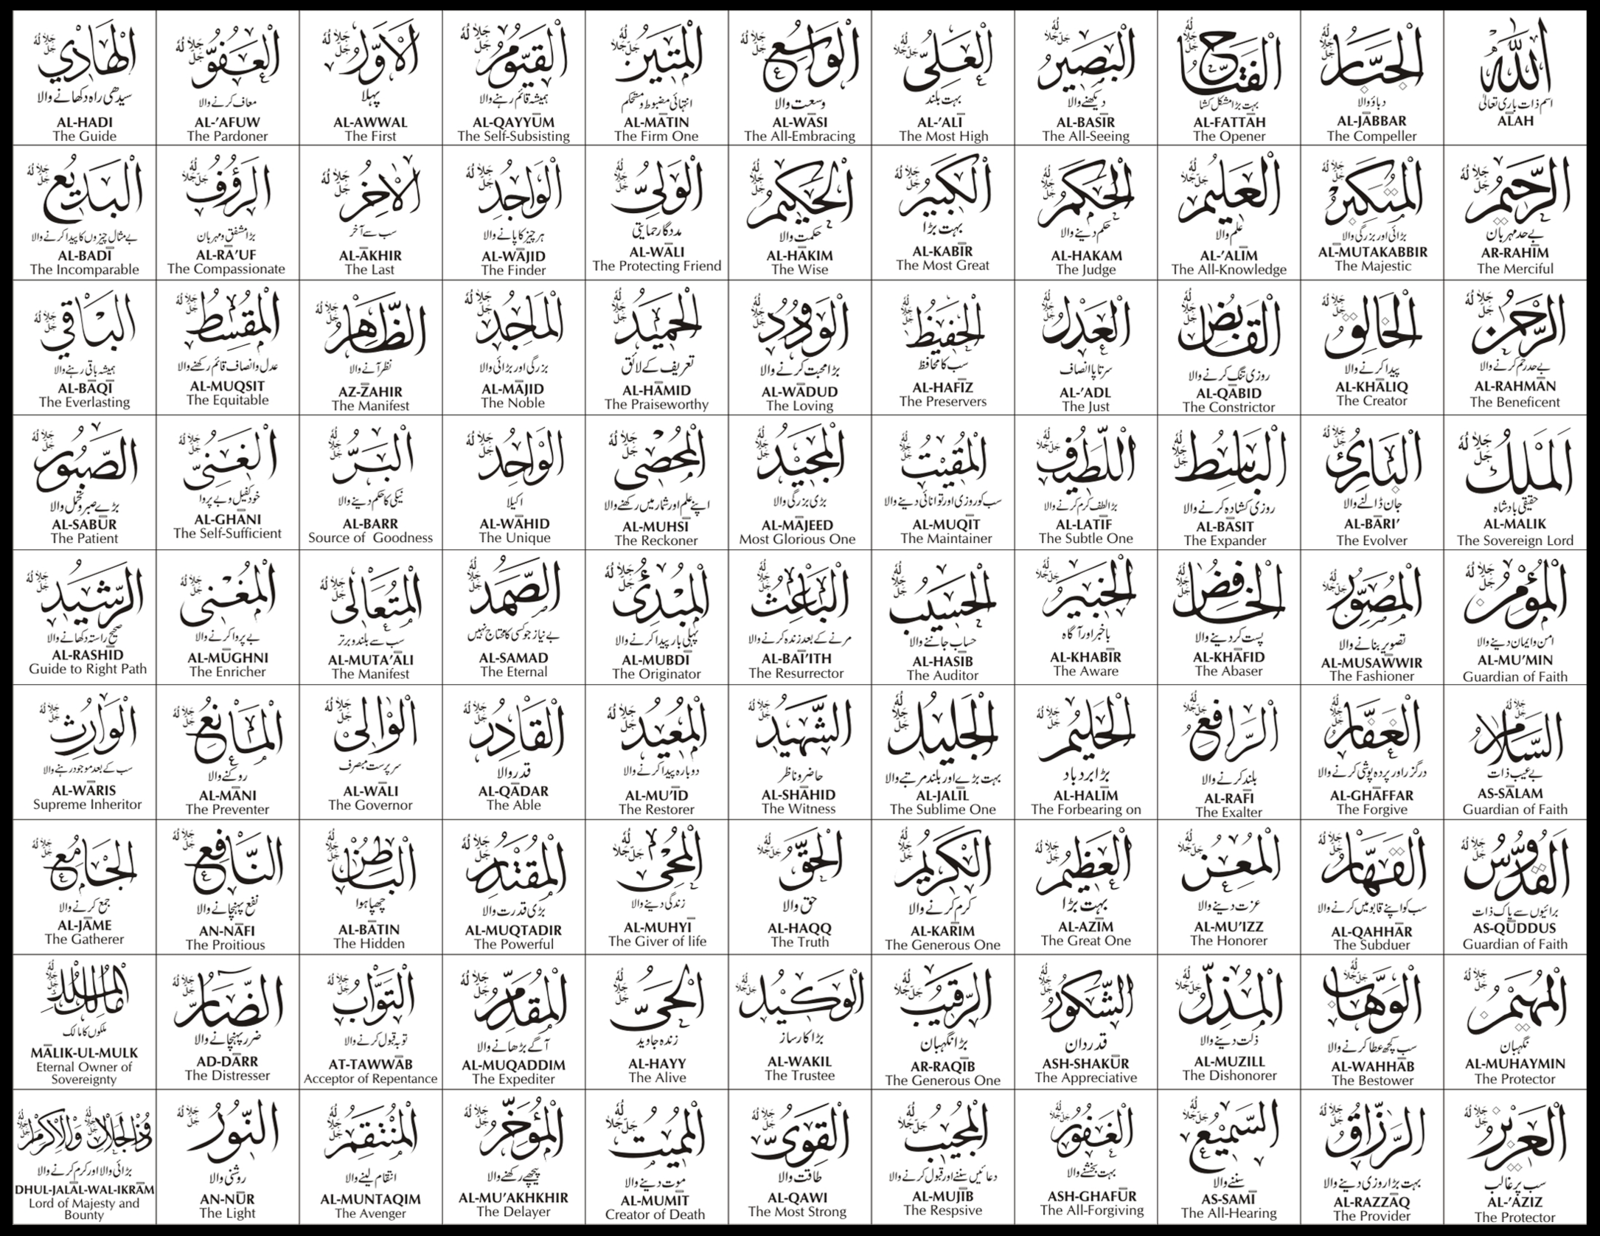 الْهَادِي جل جلاله
سیدھی راہ دکھانے والا
AL-HADI
The Guide
الْعَفُوُّ جل جلاله
معاف کرنے والا
AL-'AFUW
The Pardoner
الْاَوَّلُ جل جلاله
پہلا
AL-AWWAL
The First
الْقَيُّوْمُ جل جلاله
ہمیشہ قائم رہنے والا
AL-QAYYŪM
The Self-Subsisting
الْمَتِيْنُ جل جلاله
انتہائی مضبوط و مستحکم
AL-MĀTIN
The Firm One
الْوَاسِعُ جل جلاله
وسعت والا
AL-WĀSI
The All-Embracing
الْعَلِيُّ جل جلاله
بہت بلند
AL-'ALĪ
The Most High
الْبَصِيْرُ جل جلاله
دیکھنے والا
AL-BASĪR
The All-Seeing
الْفَتَّاحُ جل جلاله
بہت بڑا مشکل کشا
AL-FATTĀH
The Opener
الْجَبَّارُ جل جلاله
دباؤ والا
AL-JĀBBAR
The Compeller
اللّٰهُ
اسم ذات باری تعالیٰ
ĀLAH
الْبَدِيْعُ جل جلاله
بے مثال چیزوں کا پیدا کرنے والا
AL-BADĪ
The Incomparable
الرَّؤُفُ جل جلاله
بڑا مشفق و مہربان
AL-RA'UF
The Compassionate
الْاٰخِرُ جل جلاله
سب سے آخر
AL-ĀKHIR
The Last
الْوَاجِدُ جل جلاله
ہر چیز کا پانے والا
AL-WĀJID
The Finder
الْوَلِيُّ جل جلاله
مددگار حمایتی
AL-WĀLI
The Protecting Friend
الْحَكِيْمُ جل جلاله
حکمت والا
AL-HĀKIM
The Wise
الْكَبِيْرُ جل جلاله
بہت بڑا
AL-KABĪR
The Most Great
الْحَكَمُ جل جلاله
حکم دینے والا
AL-HAKAM
The Judge
الْعَلِيْمُ جل جلاله
علم والا
AL-'ALĪM
The All-Knowledge
الْمُتَكَبِّرُ جل جلاله
بڑائی اور بزرگی والا
AL-MUTAKABBIR
The Majestic
الرَّحِيْمُ جل جلاله
بے حد مہربان
AR-RAHĪM
The Merciful
الْبَاقِي جل جلاله
ہمیشہ باقی رہنے والا
AL-BĀQĪ
The Everlasting
الْمُقْسِطُ جل جلاله
عدل و انصاف قائم رکھنے والا
AL-MUQSIT
The Equitable
الظَّاهِرُ جل جلاله
نظر آنے والا
AZ-ZĀHIR
The Manifest
الْمَاجِدُ جل جلاله
بزرگی اور بڑائی والا
AL-MĀJID
The Noble
الْحَمِيْدُ جل جلاله
تعریف کے لائق
AL-HĀMID
The Praiseworthy
الْوَدُوْدُ جل جلاله
بڑا محبت کرنے والا
AL-WĀDUD
The Loving
الْحَفِيْظُ جل جلاله
سب کا محافظ
AL-HAFĪZ
The Preservers
الْعَدْلُ جل جلاله
سرتاپا انصاف
AL-'ADL
The Just
الْقَابِضُ جل جلاله
روزی تنگ کرنے والا
AL-QĀBID
The Constrictor
الْخَالِقُ جل جلاله
پیدا کرنے والا
AL-KHĀLIQ
The Creator
الرَّحْمٰنُ جل جلاله
بے حد رحم کرنے والا
AL-RAHMĀN
The Beneficent
الصَّبُوْرُ جل جلاله
بڑے صبر و تحمل والا
AL-SABŪR
The Patient
الْغَنِيُّ جل جلاله
خود کفیل و بے پروا
AL-GHĀNI
The Self-Sufficient
الْبَرُّ جل جلاله
نیکی کا حکم دینے والا
AL-BARR
Source of Goodness
الْوَاحِدُ جل جلاله
اکیلا
AL-WĀHID
The Unique
الْمُحْصِي جل جلاله
اپنے علم اور شمار میں رکھنے والا
AL-MUHSĪ
The Reckoner
الْمَجِيْدُ جل جلاله
بڑی بزرگی والا
AL-MĀJEED
Most Glorious One
الْمُقِيْتُ جل جلاله
سب کو روزی اور توانائی دینے والا
AL-MUQĪT
The Maintainer
اللَّطِيْفُ جل جلاله
بڑا لطف کرم کرنے والا
AL-LATĪF
The Subtle One
الْبَاسِطُ جل جلاله
روزی کشادہ کرنے والا
AL-BĀSIT
The Expander
الْبَارِئُ جل جلاله
جان ڈالنے والا
AL-BĀRI'
The Evolver
الْمَلِكُ جل جلاله
حقیقی بادشاہ
AL-MALIK
The Sovereign Lord
الرَّشِيْدُ جل جلاله
صحیح راستہ دکھانے والا
AL-RASHĪD
Guide to Right Path
الْمُغْنِي جل جلاله
بے پروا کرنے والا
AL-MŪGHNI
The Enricher
الْمُتَعَالِي جل جلاله
سب سے بلند و برتر
AL-MUTA'ĀLI
The Manifest
الصَّمَدُ جل جلاله
بے نیاز جو کسی کا محتاج نہیں
AL-SAMAD
The Eternal
الْمُبْدِئُ جل جلاله
پہلی بار پیدا کرنے والا
AL-MUBDĪ
The Originator
الْبَاعِثُ جل جلاله
مرنے کے بعد زندہ کرنے والا
AL-BAĪ'ITH
The Resurrector
الْحَسِيْبُ جل جلاله
حساب جاننے والا
AL-HASĪB
The Auditor
الْخَبِيْرُ جل جلاله
باخبر اور آگاہ
AL-KHABĪR
The Aware
الْخَافِضُ جل جلاله
پست کر دینے والا
AL-KHĀFID
The Abaser
الْمُصَوِّرُ جل جلاله
تصویر بنانے والا
AL-MUSAWWIR
The Fashioner
الْمُؤْمِنُ جل جلاله
امن و ایمان دینے والا
AL-MU'MIN
Guardian of Faith
الْوَارِثُ جل جلاله
سب کے بعد موجود رہنے والا
AL-WĀRIS
Supreme Inheritor
الْمَانِعُ جل جلاله
روکنے والا
AL-MĀNI
The Preventer
الْوَالِي جل جلاله
سرپرست متصرف
AL-WĀLI
The Governor
الْقَادِرُ جل جلاله
قدر والا
AL-QĀDAR
The Able
الْمُعِيْدُ جل جلاله
دوبارہ پیدا کرنے والا
AL-MU'ĪD
The Restorer
الشَّهِيْدُ جل جلاله
حاضر و ناظر
AL-SHĀHID
The Witness
الْجَلِيْلُ جل جلاله
بہت بڑے اور بلند مرتبے والا
AL-JALĪL
The Sublime One
الْحَلِيْمُ جل جلاله
بڑا بردباد
AL-HALĪM
The Forbearing on
الرَّافِعُ جل جلاله
بلند کرنے والا
AL-RAFĪ
The Exalter
الْغَفَّارُ جل جلاله
درگزر اور پردہ پوشی کرنے والا
AL-GHĀFFAR
The Forgive
السَّلَامُ جل جلاله
بے عیب ذات
AS-SĀLAM
Guardian of Faith
الْجَامِعُ جل جلاله
جمع کرنے والا
AL-JĀME
The Gatherer
النَّافِعُ جل جلاله
نفع پہنچانے والا
AN-NĀFI
The Proitious
الْبَاطِنُ جل جلاله
چھپا ہوا
AL-BĀTIN
The Hidden
الْمُقْتَدِرُ جل جلاله
بڑی قدرت والا
AL-MUQTADIR
The Powerful
الْمُحْيِي جل جلاله
زندگی دینے والا
AL-MUHYĪ
The Giver of life
الْحَقُّ جل جلاله
حق والا
AL-HAQQ
The Truth
الْكَرِيْمُ جل جلاله
کرم کرنے والا
AL-KARĪM
The Generous One
الْعَظِيْمُ جل جلاله
بہت بڑا
AL-AZĪM
The Great One
الْمُعِزُّ جل جلاله
عزت دینے والا
AL-MU'IZZ
The Honorer
الْقَهَّارُ جل جلاله
سب کو اپنے قابو میں کرنے والا
AL-QAHHĀR
The Subduer
الْقُدُّوْسُ جل جلاله
برائیوں سے پاک ذات
AS-QŪDDUS
Guardian of Faith
مَالِكُ الْمُلْكِ جل جلاله
ملکوں کا مالک
MĀLIK-UL-MULK
Eternal Owner of
Sovereignty
الضَّارُّ جل جلاله
ضرر پہنچانے والا
AD-DĀRR
The Distresser
التَّوَّابُ جل جلاله
توبہ قبول کرنے والا
AT-TAWWĀB
Acceptor of Repentance
الْمُقَدِّمُ جل جلاله
آگے بڑھانے والا
AL-MUQADDIM
The Expediter
الْحَيُّ جل جلاله
زندہ جاوید
AL-HAYY
The Alive
الْوَكِيْلُ جل جلاله
بڑا کارساز
AL-WAKIL
The Trustee
الرَّقِيْبُ جل جلاله
بڑا نگہبان
AR-RAQĪB
The Generous One
الشَّكُوْرُ جل جلاله
قدردان
ASH-SHAKŪR
The Appreciative
الْمُذِلُّ جل جلاله
ذلت دینے والا
AL-MUZILL
The Dishonorer
الْوَهَّابُ جل جلاله
سب کچھ عطا کرنے والا
AL-WAHHĀB
The Bestower
الْمُهَيْمِنُ جل جلاله
نگہبان
AL-MUHAYMIN
The Protector
ذُو الْجَلَالِ وَالْاِكْرَامِ جل جلاله
بڑائی والا اور کرم کرنے والا
DHUL-JALĀL-WAL-IKRĀM
Lord of Majesty and
Bounty
النُّوْرُ جل جلاله
روشنی والا
AN-NŪR
The Light
الْمُنْتَقِمُ جل جلاله
انتقام لینے والا
AL-MUNTAQIM
The Avenger
الْمُؤَخِّرُ جل جلاله
پیچھے رکھنے والا
AL-MU'AKHKHIR
The Delayer
الْمُمِيْتُ جل جلاله
موت دینے والا
AL-MUMĪT
Creator of Death
الْقَوِيُّ جل جلاله
طاقت والا
AL-QAWI
The Most Strong
الْمُجِيْبُ جل جلاله
دعائیں سننے اور قبول کرنے والا
AL-MUJĪB
The Respsive
الْغَفُوْرُ جل جلاله
بہت بخشنے والا
ASH-GHAFŪR
The All-Forgiving
السَّمِيْعُ جل جلاله
سننے والا
AS-SAMĪ
The All-Hearing
الرَّزَّاقُ جل جلاله
بہت بڑا روزی دینے والا
AL-RAZZĀQ
The Provider
الْعَزِيْزُ جل جلاله
سب پر غالب
AL-'ĀZIZ
The Protector